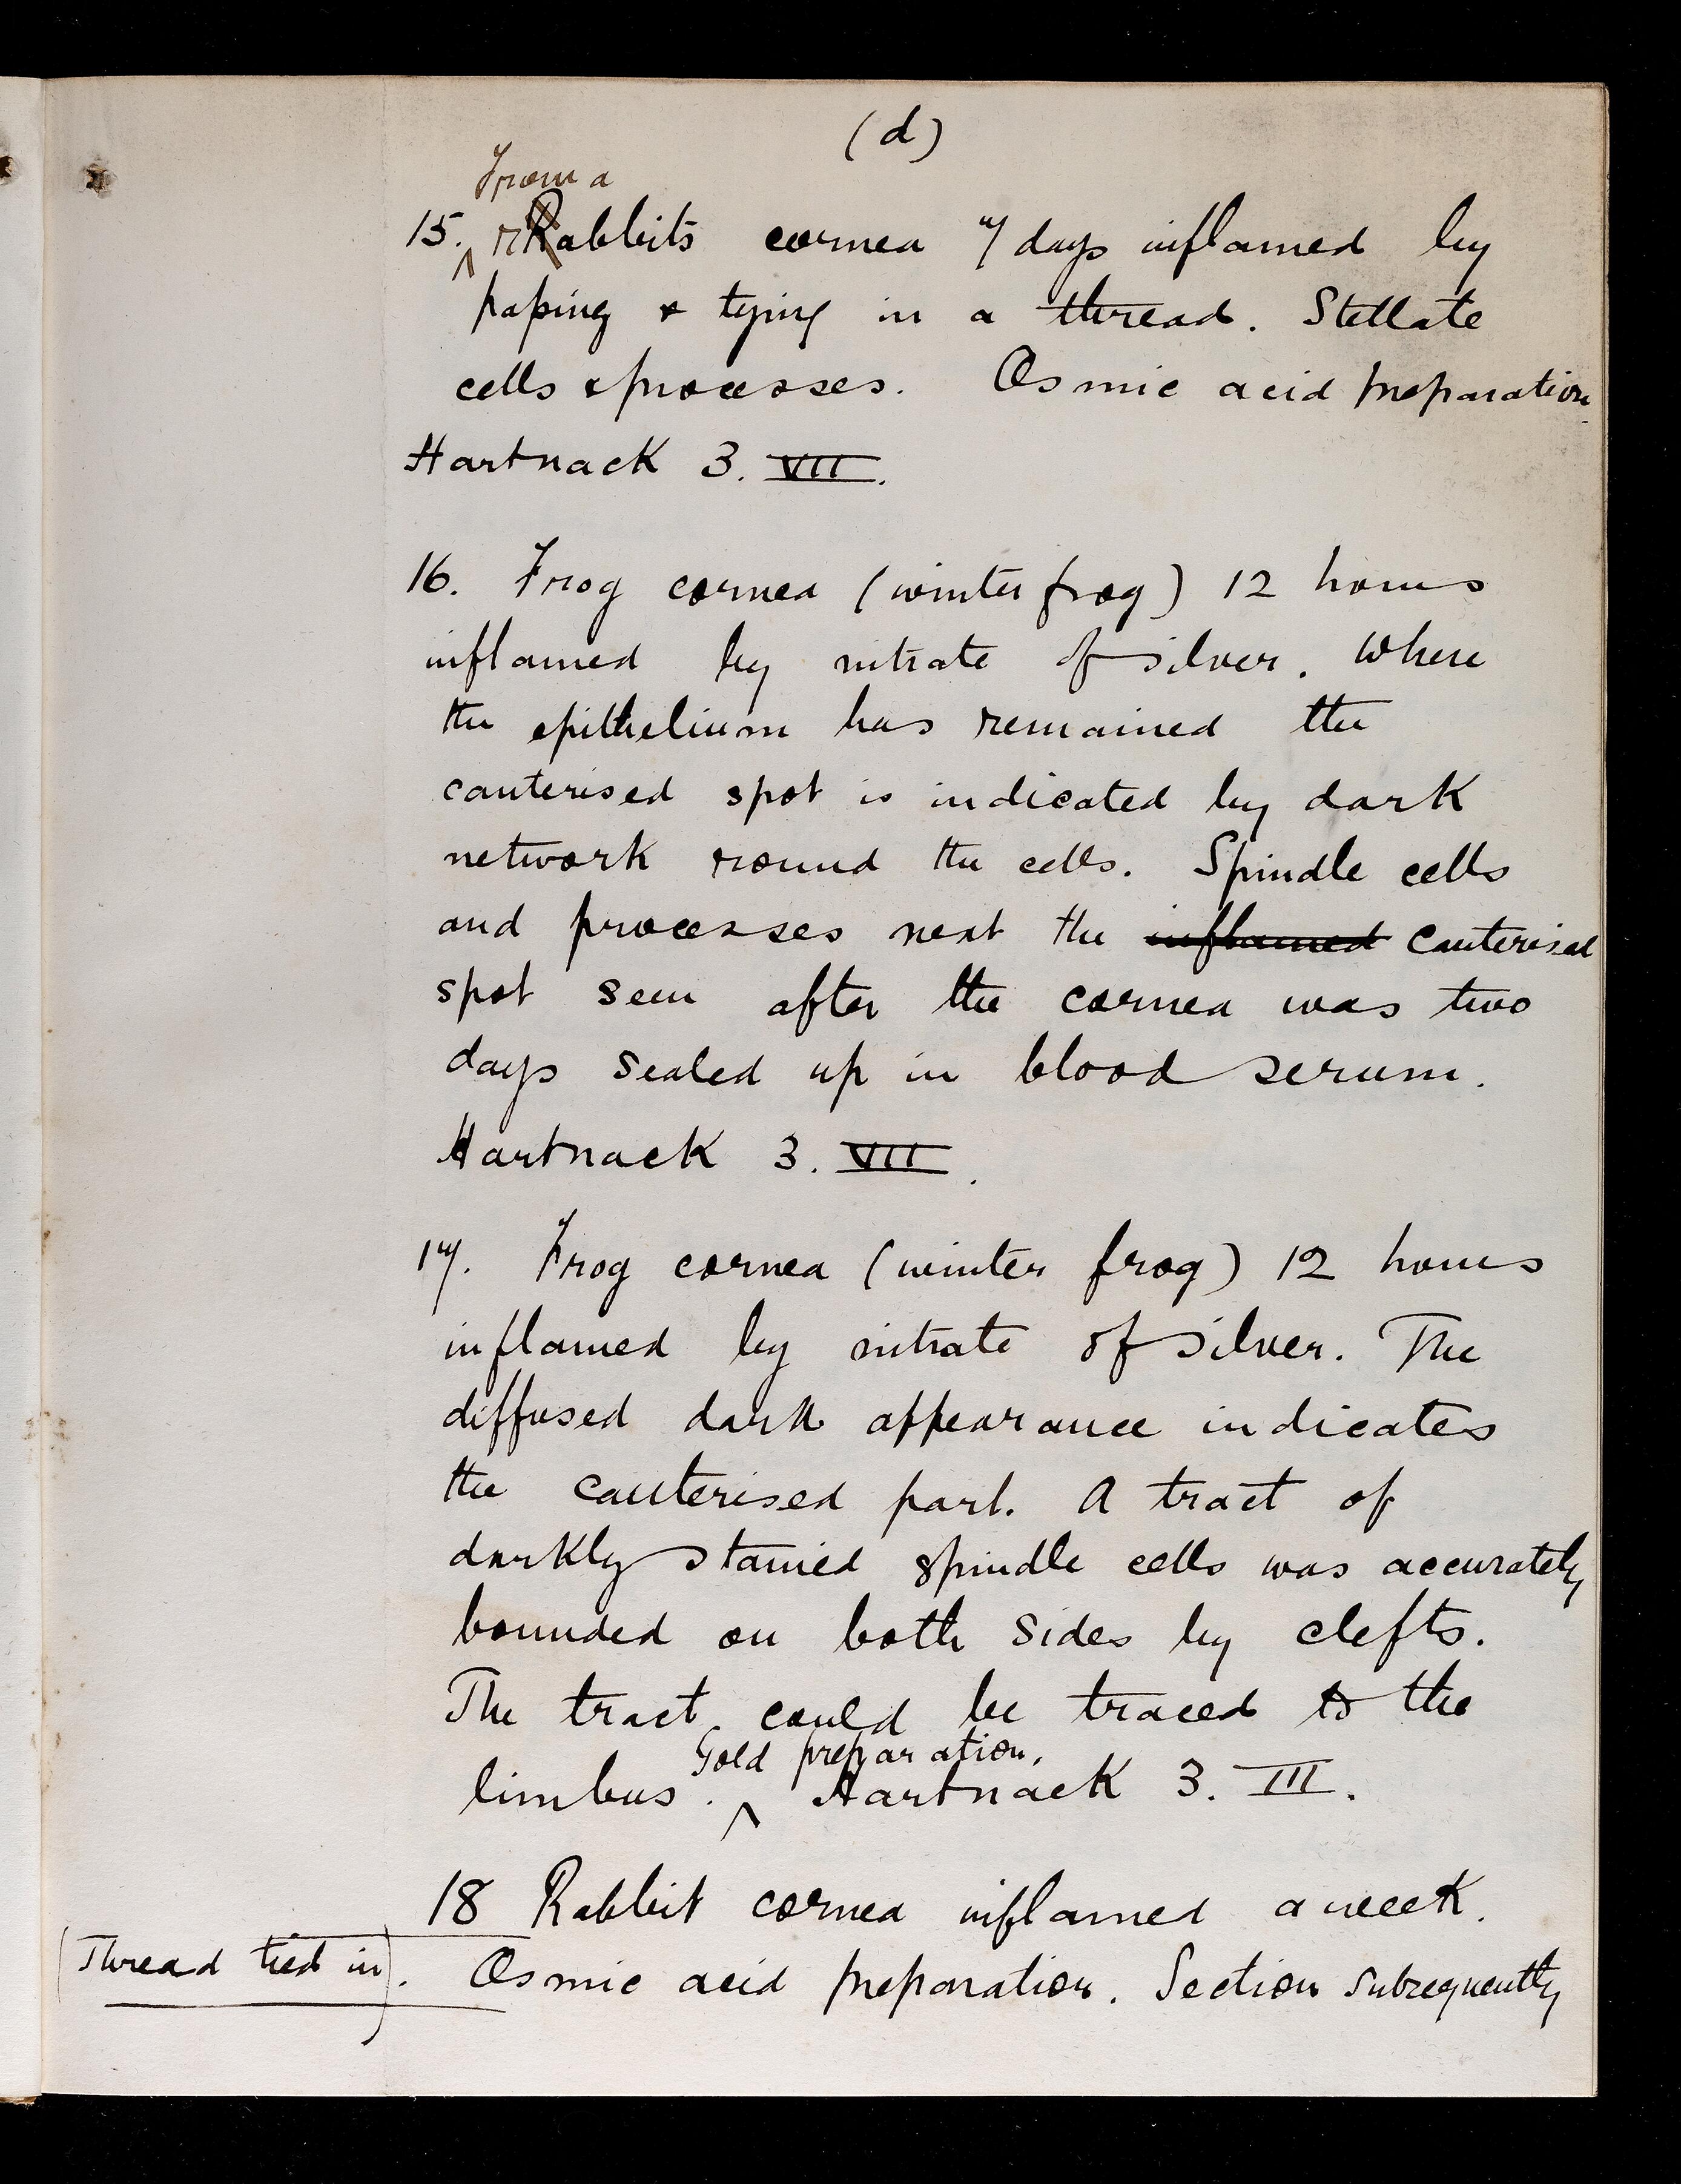 (d)
From a
15. rabbits cornea 7 days inflamed by
paping & tying in a thread. Stellate
cells & processes. Osmic acid preparation
Hartnack 3. VII.
16. Frog cornea (winter frog) 12 hours
inflamed by nitrate of silver. Where
the epithelium has remained the
cauterised spot is indicated by dark
network round the cells. Spindle cells
and processes next the inflamed cauterised
spot seen after the cornea was two
days sealed up in blood serum.
Hartnack 3. VII.
17. Frog cornea (winter frog) 12 hours
inflamed by nitrate of silver. The
diffused dark appearance indicates
the cauterised part. A tract of
darkly stained spindle cells was accurately
bounded on both sides by clefts.
The tract could be traced to the
Gold preparation.
limbus. Hartnack 3. III.
18 Rabbit cornea inflamed a week.
(Thread tied in). Osmic acid preparation. Section subsequently